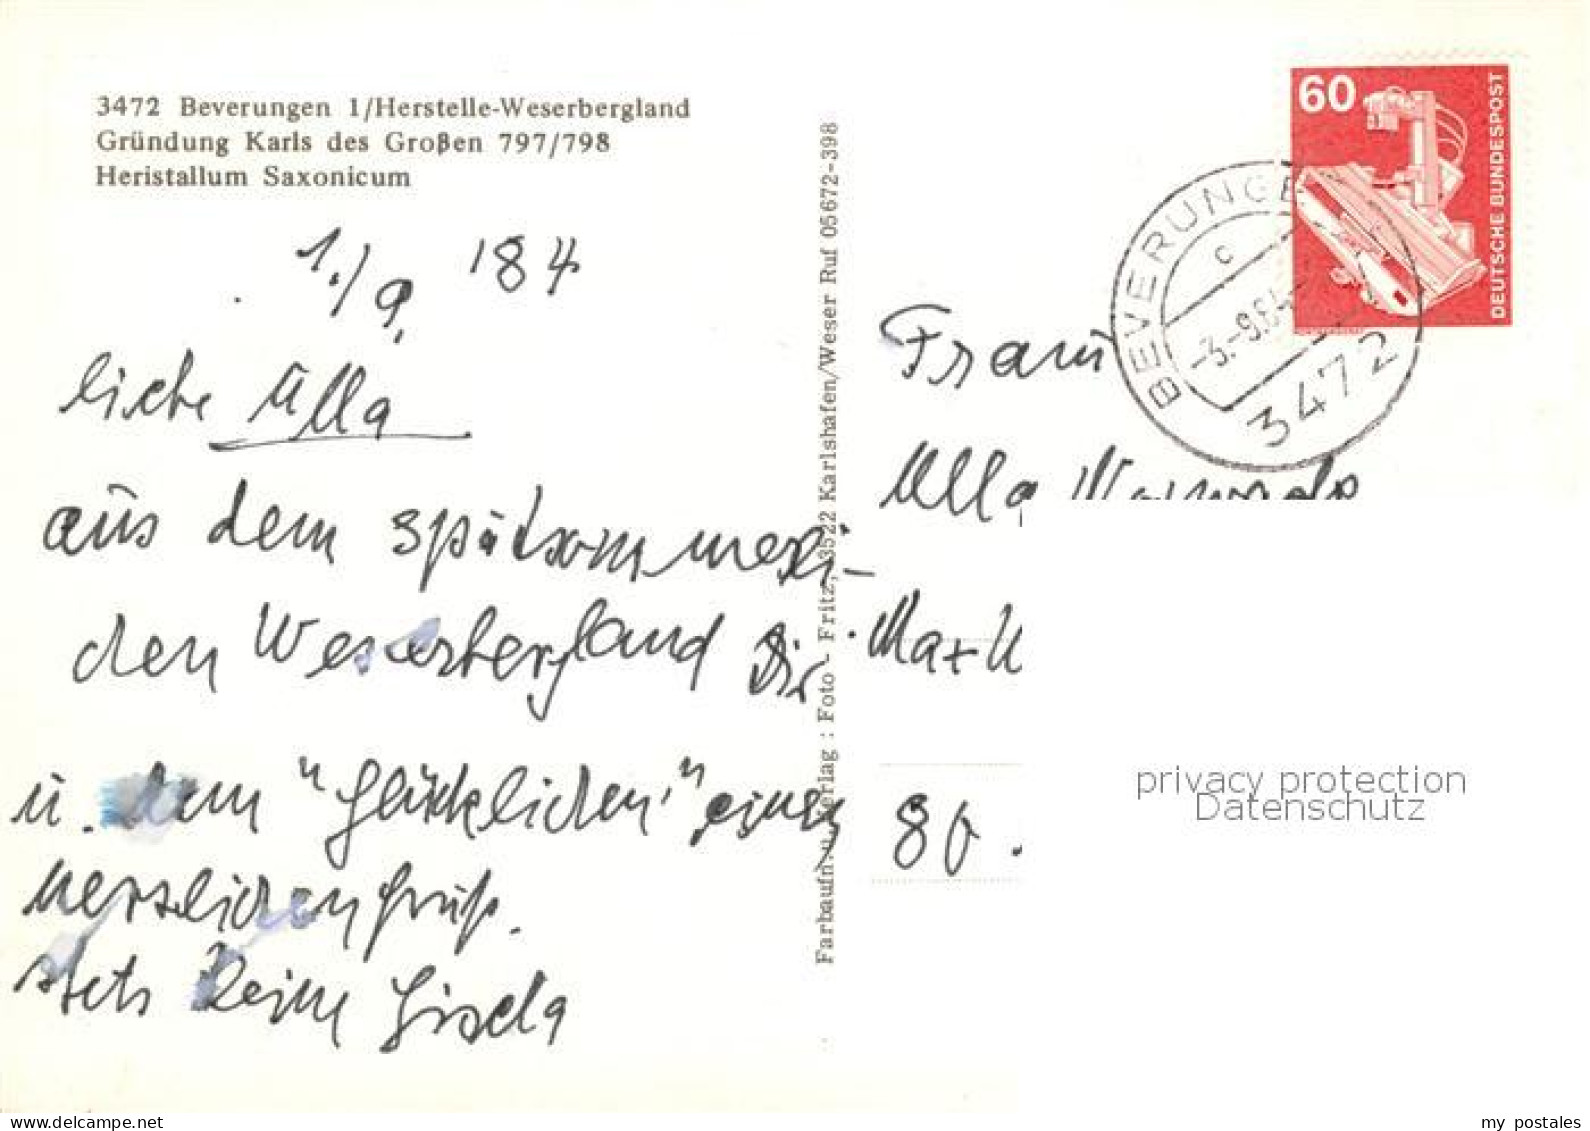 3472 Beverungen 1/Herstelle-Weserbergland
Gründung Karls des Großen 797/798
Heristallum Saxonicum
1./9. '84
liebe Ulla
aus dem spätsommerli-
den Weserbergland Dir
u. dem "Glücklichen" einen
herzlichen Gruß.
stets Deine Gisela
Farbaufn. u. Verlag : Foto - Fritz, 3522 Karlshafen/Weser Ruf 05672-398
60
DEUTSCHE BUNDESPOST
BEVERUNGE
c
-3.-9.84
3472
Frau
Ulla
Max
80
privacy protection
Datenschutz
my postales